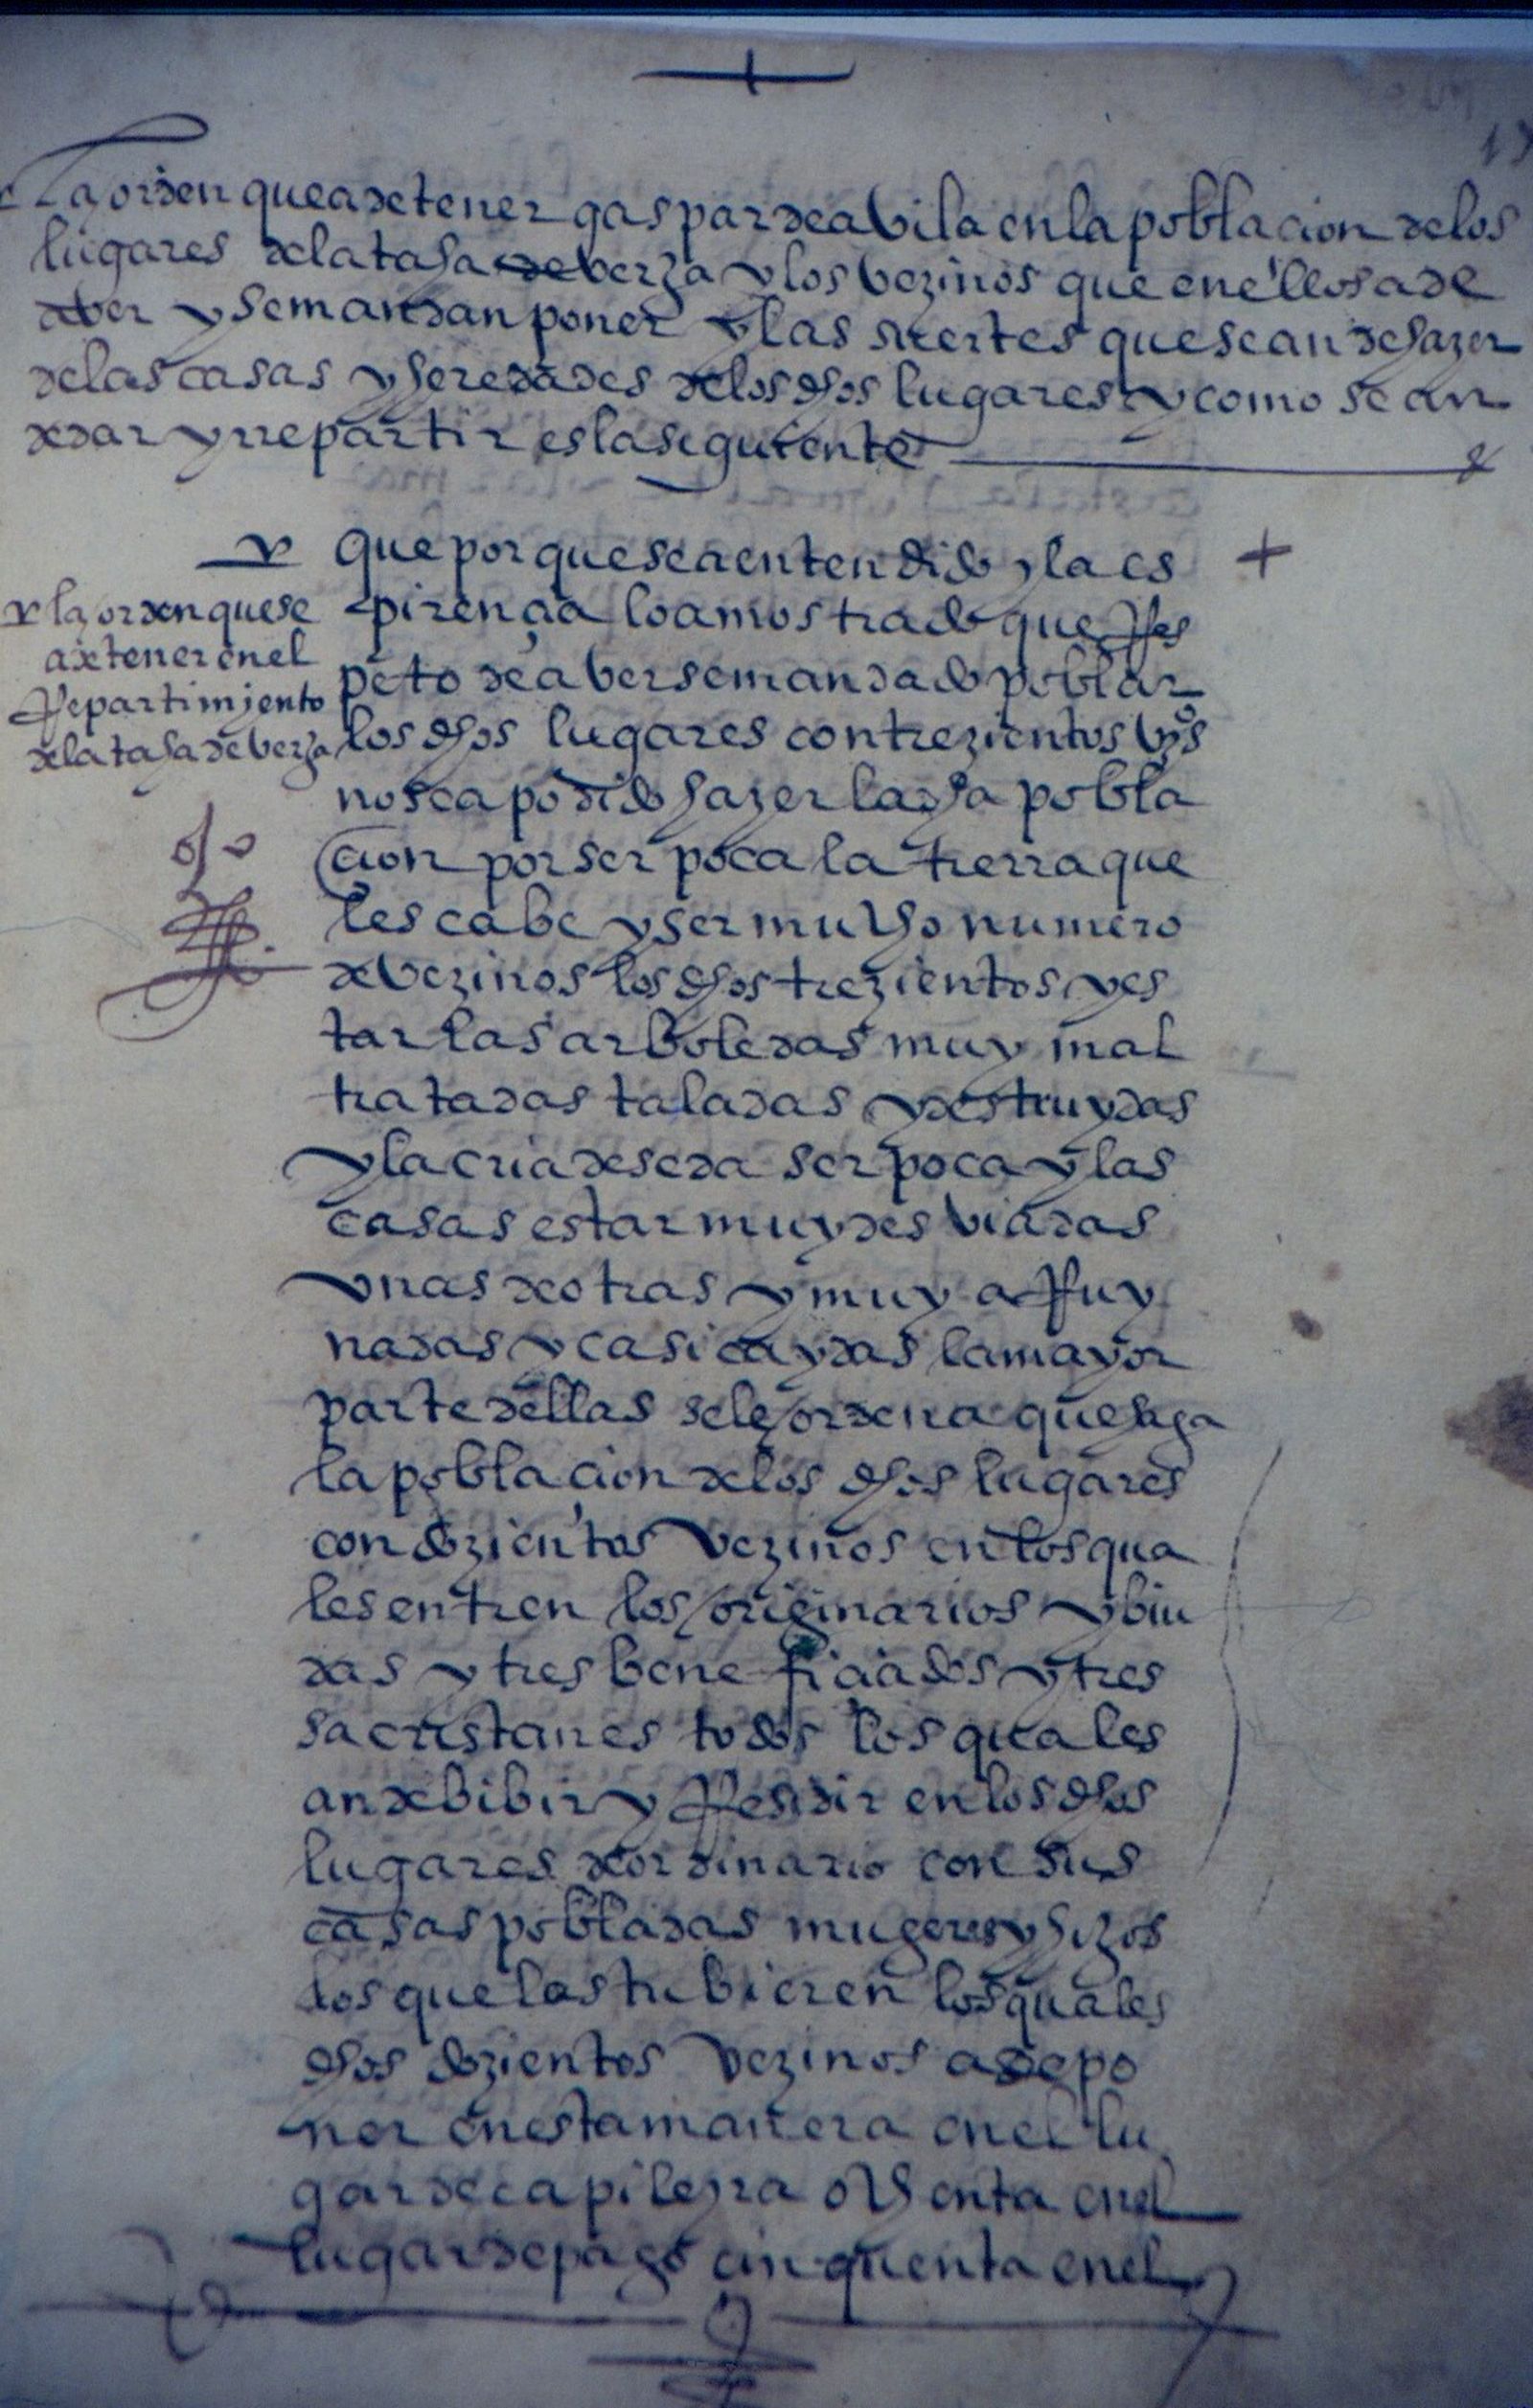 La orden que a de tener gaspar de abila en la poblacion de los
lugares de la taha de berja y los vezinos que en ellos a de
aber y se mandan poner y las suertes que se an de hazer
de las casas y heredades de los dhos lugares y como se an
de dar y rrepartir es la siguiente
que porque se a entendido y la es
pirençia lo a mostrado que rres
peto de aber se mandado poblar
los dhos lugares con trezientos vzos
no se a podido hazer la dha pobla
cion por ser poca la tierra que
les cabe y ser mucho numero
de vezinos los dhos trezientos y es
tar las arboledas muy mal
tratadas taladas y destruydas
y la cria de seda ser poca y las
casas estar muy desviadas
unas de otras y muy arruy
nadas y casi caydas la mayor
parte dellas se le ordena que haga
la poblacion de los dhos lugares
con dozientos vezinos en los qua
les entren los originarios y biu
das y tres beneficiados y tres
sacristanes todos los quales
an de bibir y rresidir en los dhos
lugares de ordinario con sus
casas pobladas mugeres y hijos
los que las tubieren los quales
dhos dozientos vezinos a de po
ner en esta manera en el lu
gar de capileyra ochenta en el
lugar de pago cinquenta en el
la orden que se
a de tener en el
rrepartimiento
de la taha de berja